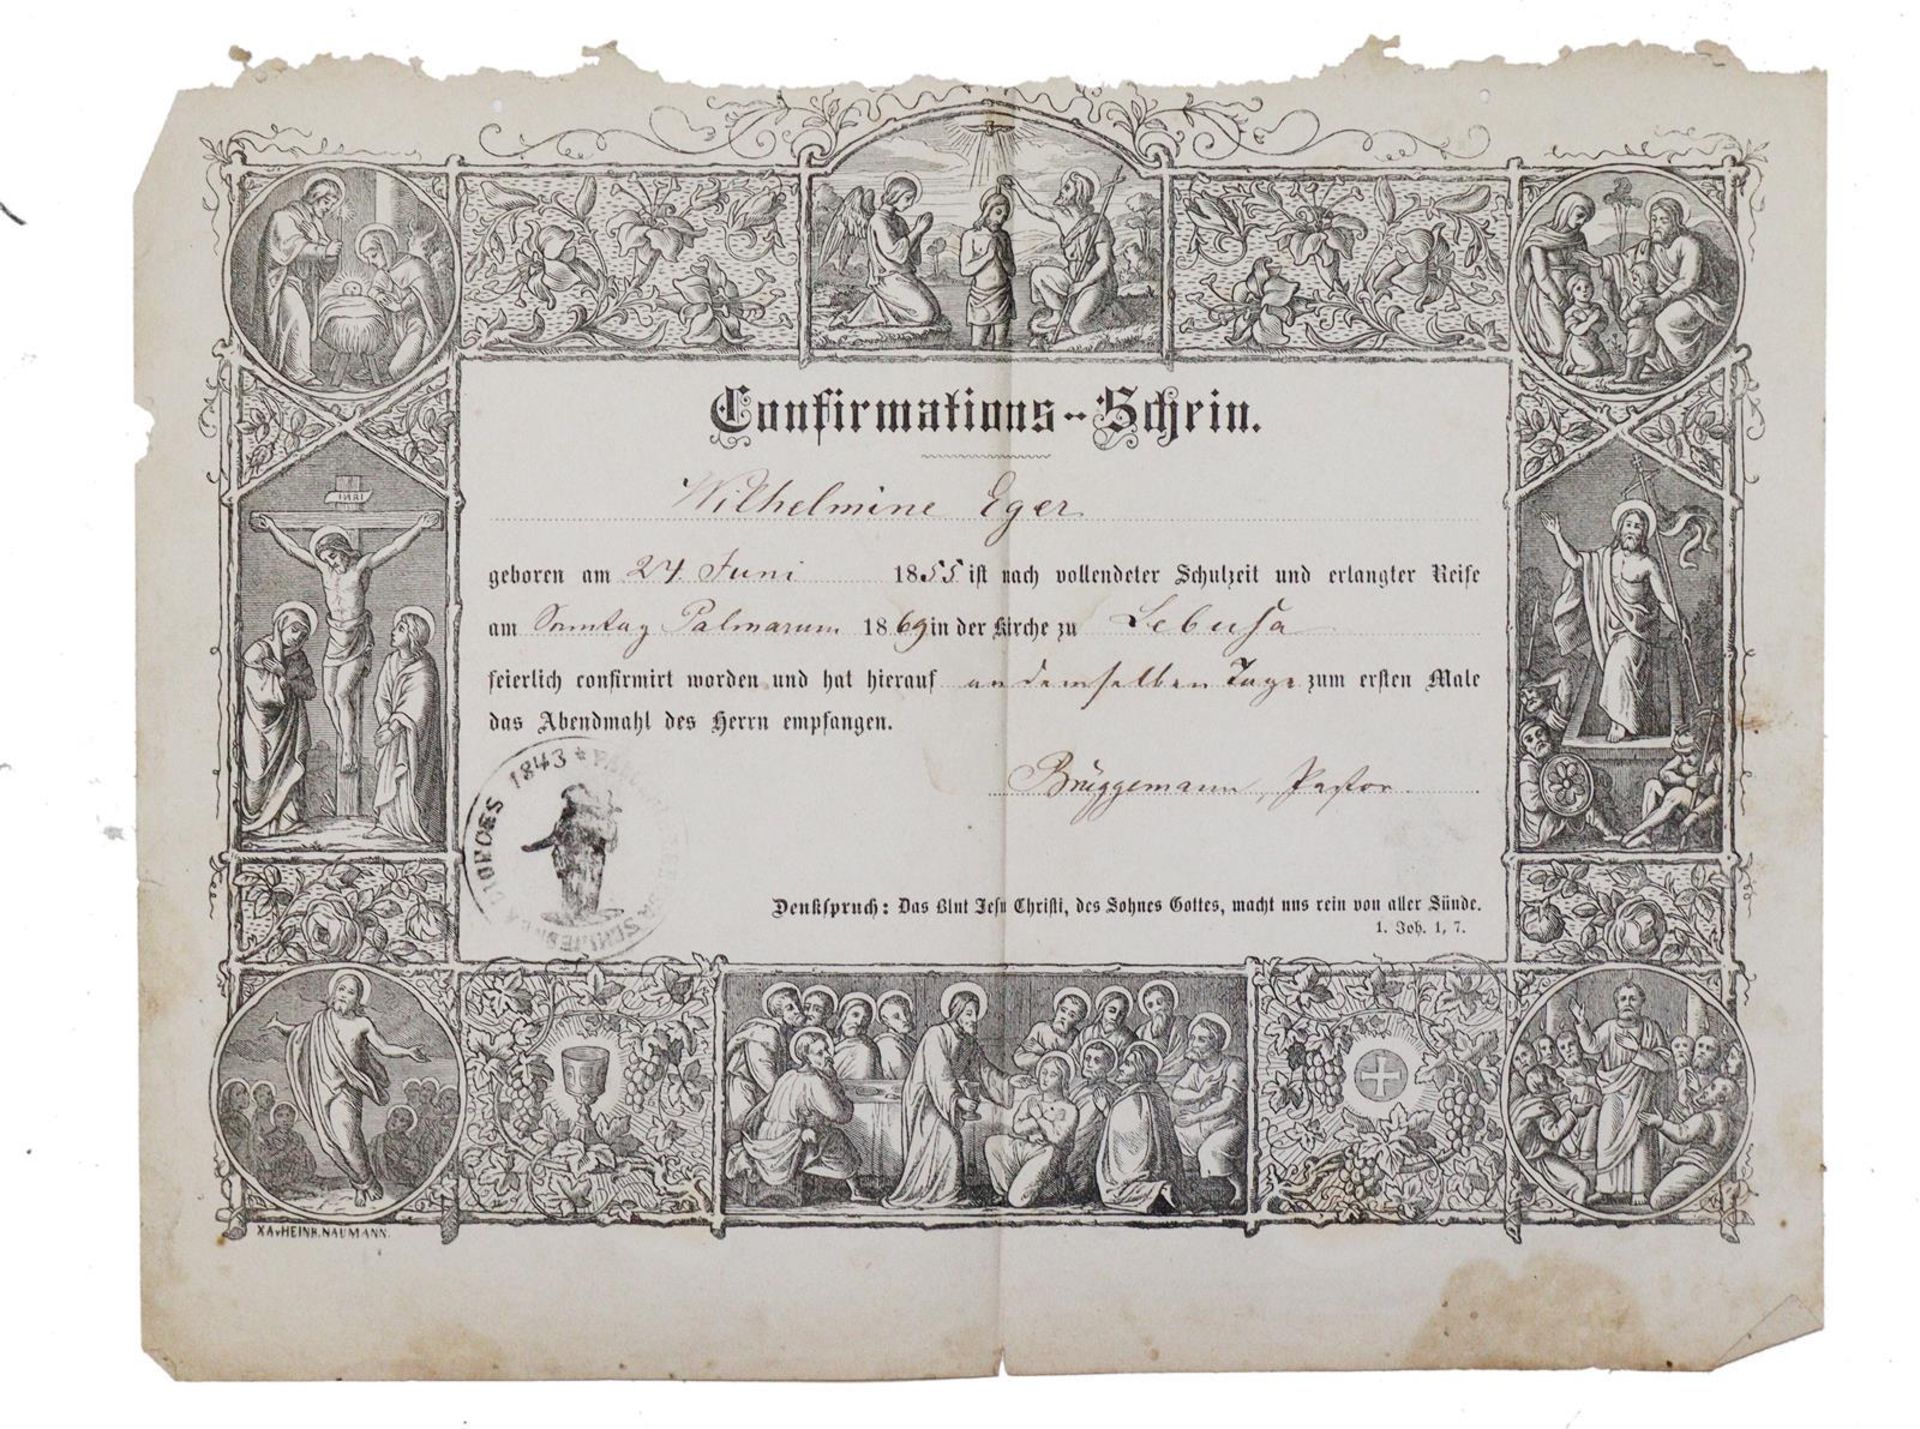 INRI
Confirmations-Schein.
Wilhelmine Eger
geboren am 24. Juni 1855 ist nach vollendeter Schulzeit und erlangter Reife
am Sonntag Palmarum 1869 in der Kirche zu Lebusa
feierlich confirmirt worden und hat hierauf an demselben Tage zum ersten Male
das Abendmahl des Herrn empfangen.
1843 *
Brüggemann, Pastor.
Denkspruch: Das Blut Jesu Christi, des Sohnes Gottes, macht uns rein von aller Sünde.
1. Joh. 1, 7.
XAvHEINR.NAUMANN.